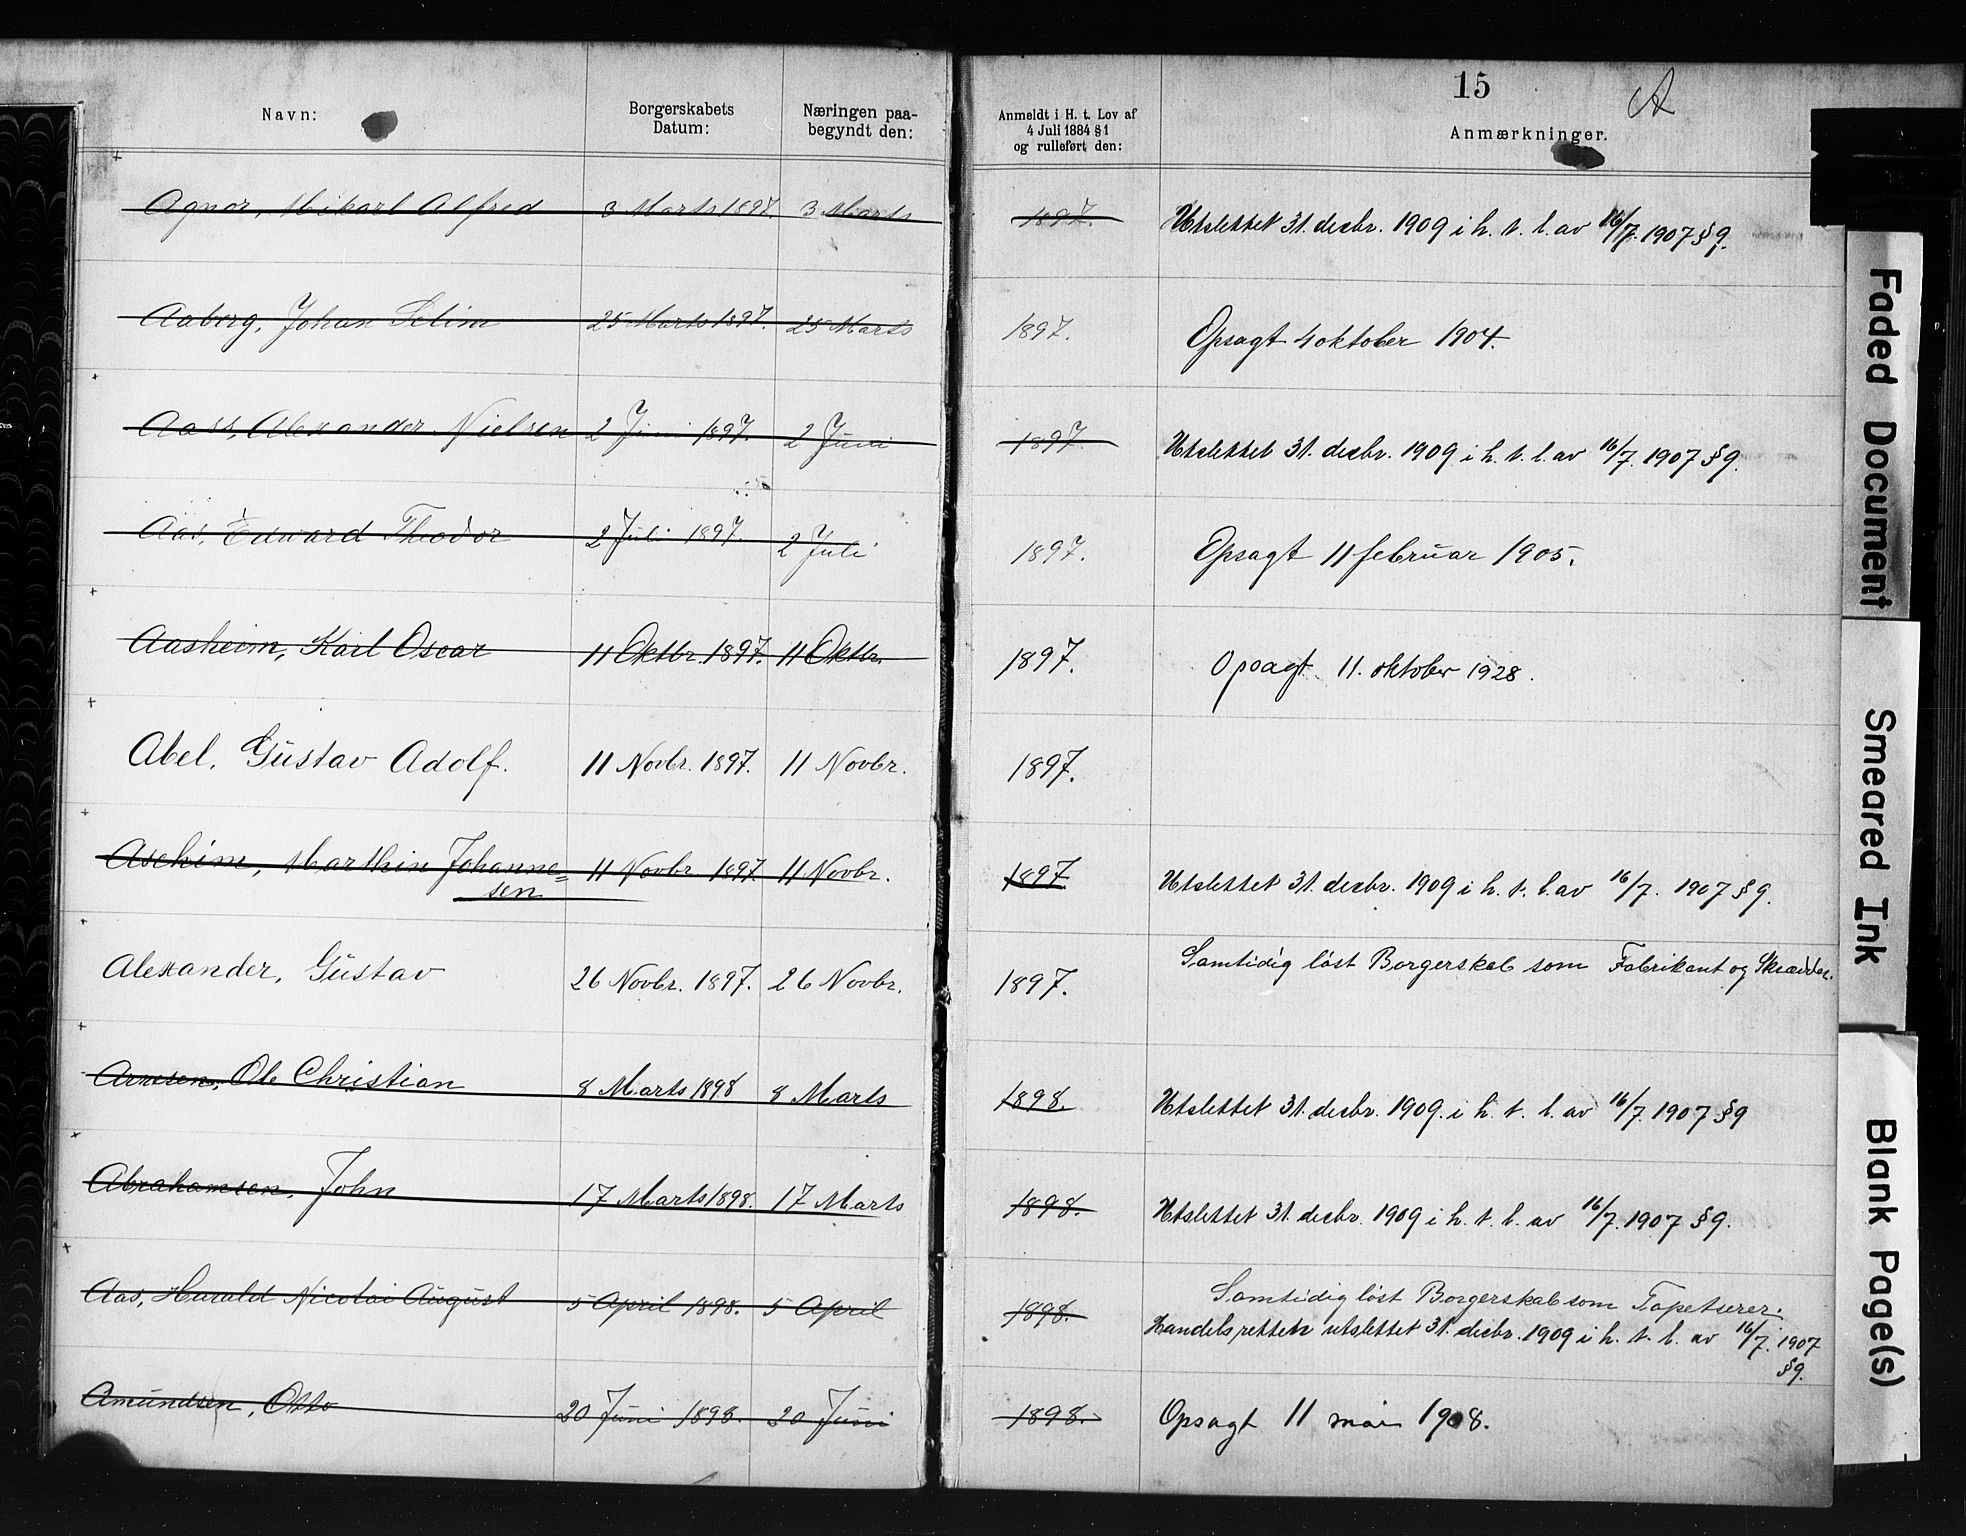 15 A
Navn: Borgerskabets Datum: Næringen paa-begyndt den: Anmeldt i H. t. Lov af 4 Juli 1884 § 1 og rulleført den: Anmærkninger.
Agnor, Mikael Alfred 3 Marts 1897. 3 Marts 1897. Utslettet 31. decbr. 1909 i h. t. l. av 16/7. 1907 § 9.
Aaberg, Johan Selim 25 Marts 1897. 25 Marts 1897. Opsagt 4 oktober 1904.
Aass, Alexander Nielsen 2 Juni 1897. 2 Juni 1897. Utslettet 31. decbr. 1909 i h. t. l. av 16/7. 1907 § 9.
Aas, Edward Theodor 2 Juli 1897. 2 Juli 1897. Opsagt 11 februar 1905.
Aasheim, Karl Oscar 11 Oktbr. 1897. 11 Oktbr. 1897. Opsagt 11. oktober 1928.
Abel, Gustav Adolf. 11 Novbr. 1897. 11 Novbr. 1897.
Aschim, Marthin Johanne=
sen 11 Novbr. 1897. 11 Novbr. 1897 Utslettet 31. decbr. 1909 i h. t. l. av 16/7. 1907 § 9.
Alexander, Gustav 26 Novbr. 1897. 26 Novbr. 1897. Samtidig løst Borgerskab som Fabrikant og Skrædder.
Arnesen, Ole Christian 8 Marts 1898 8 Marts 1898. Utslettet 31. decbr. 1909. i h. t. l. av 16/7. 1907 § 9
Abrahamsen, John 17 Marts 1898. 17 Marts 1898. Utslettet 31. decbr. 1909 i h. t. l. av 16/7. 1907 § 9.
Aas, Harald Nicolai August 5 April 1898. 5 April 1898. Samtidig løst Borgerskab som Tapetserer.
Handelsretten utslettet 31. decbr. 1909 i h. t. l. av 16/7. 1907
§ 9.
Amundsen, Otto 20 Juni 1898. 20 Juni 1898. Opsagt 11 mai 1908.
Faded Document
Smeared Ink
Blank Page(s)